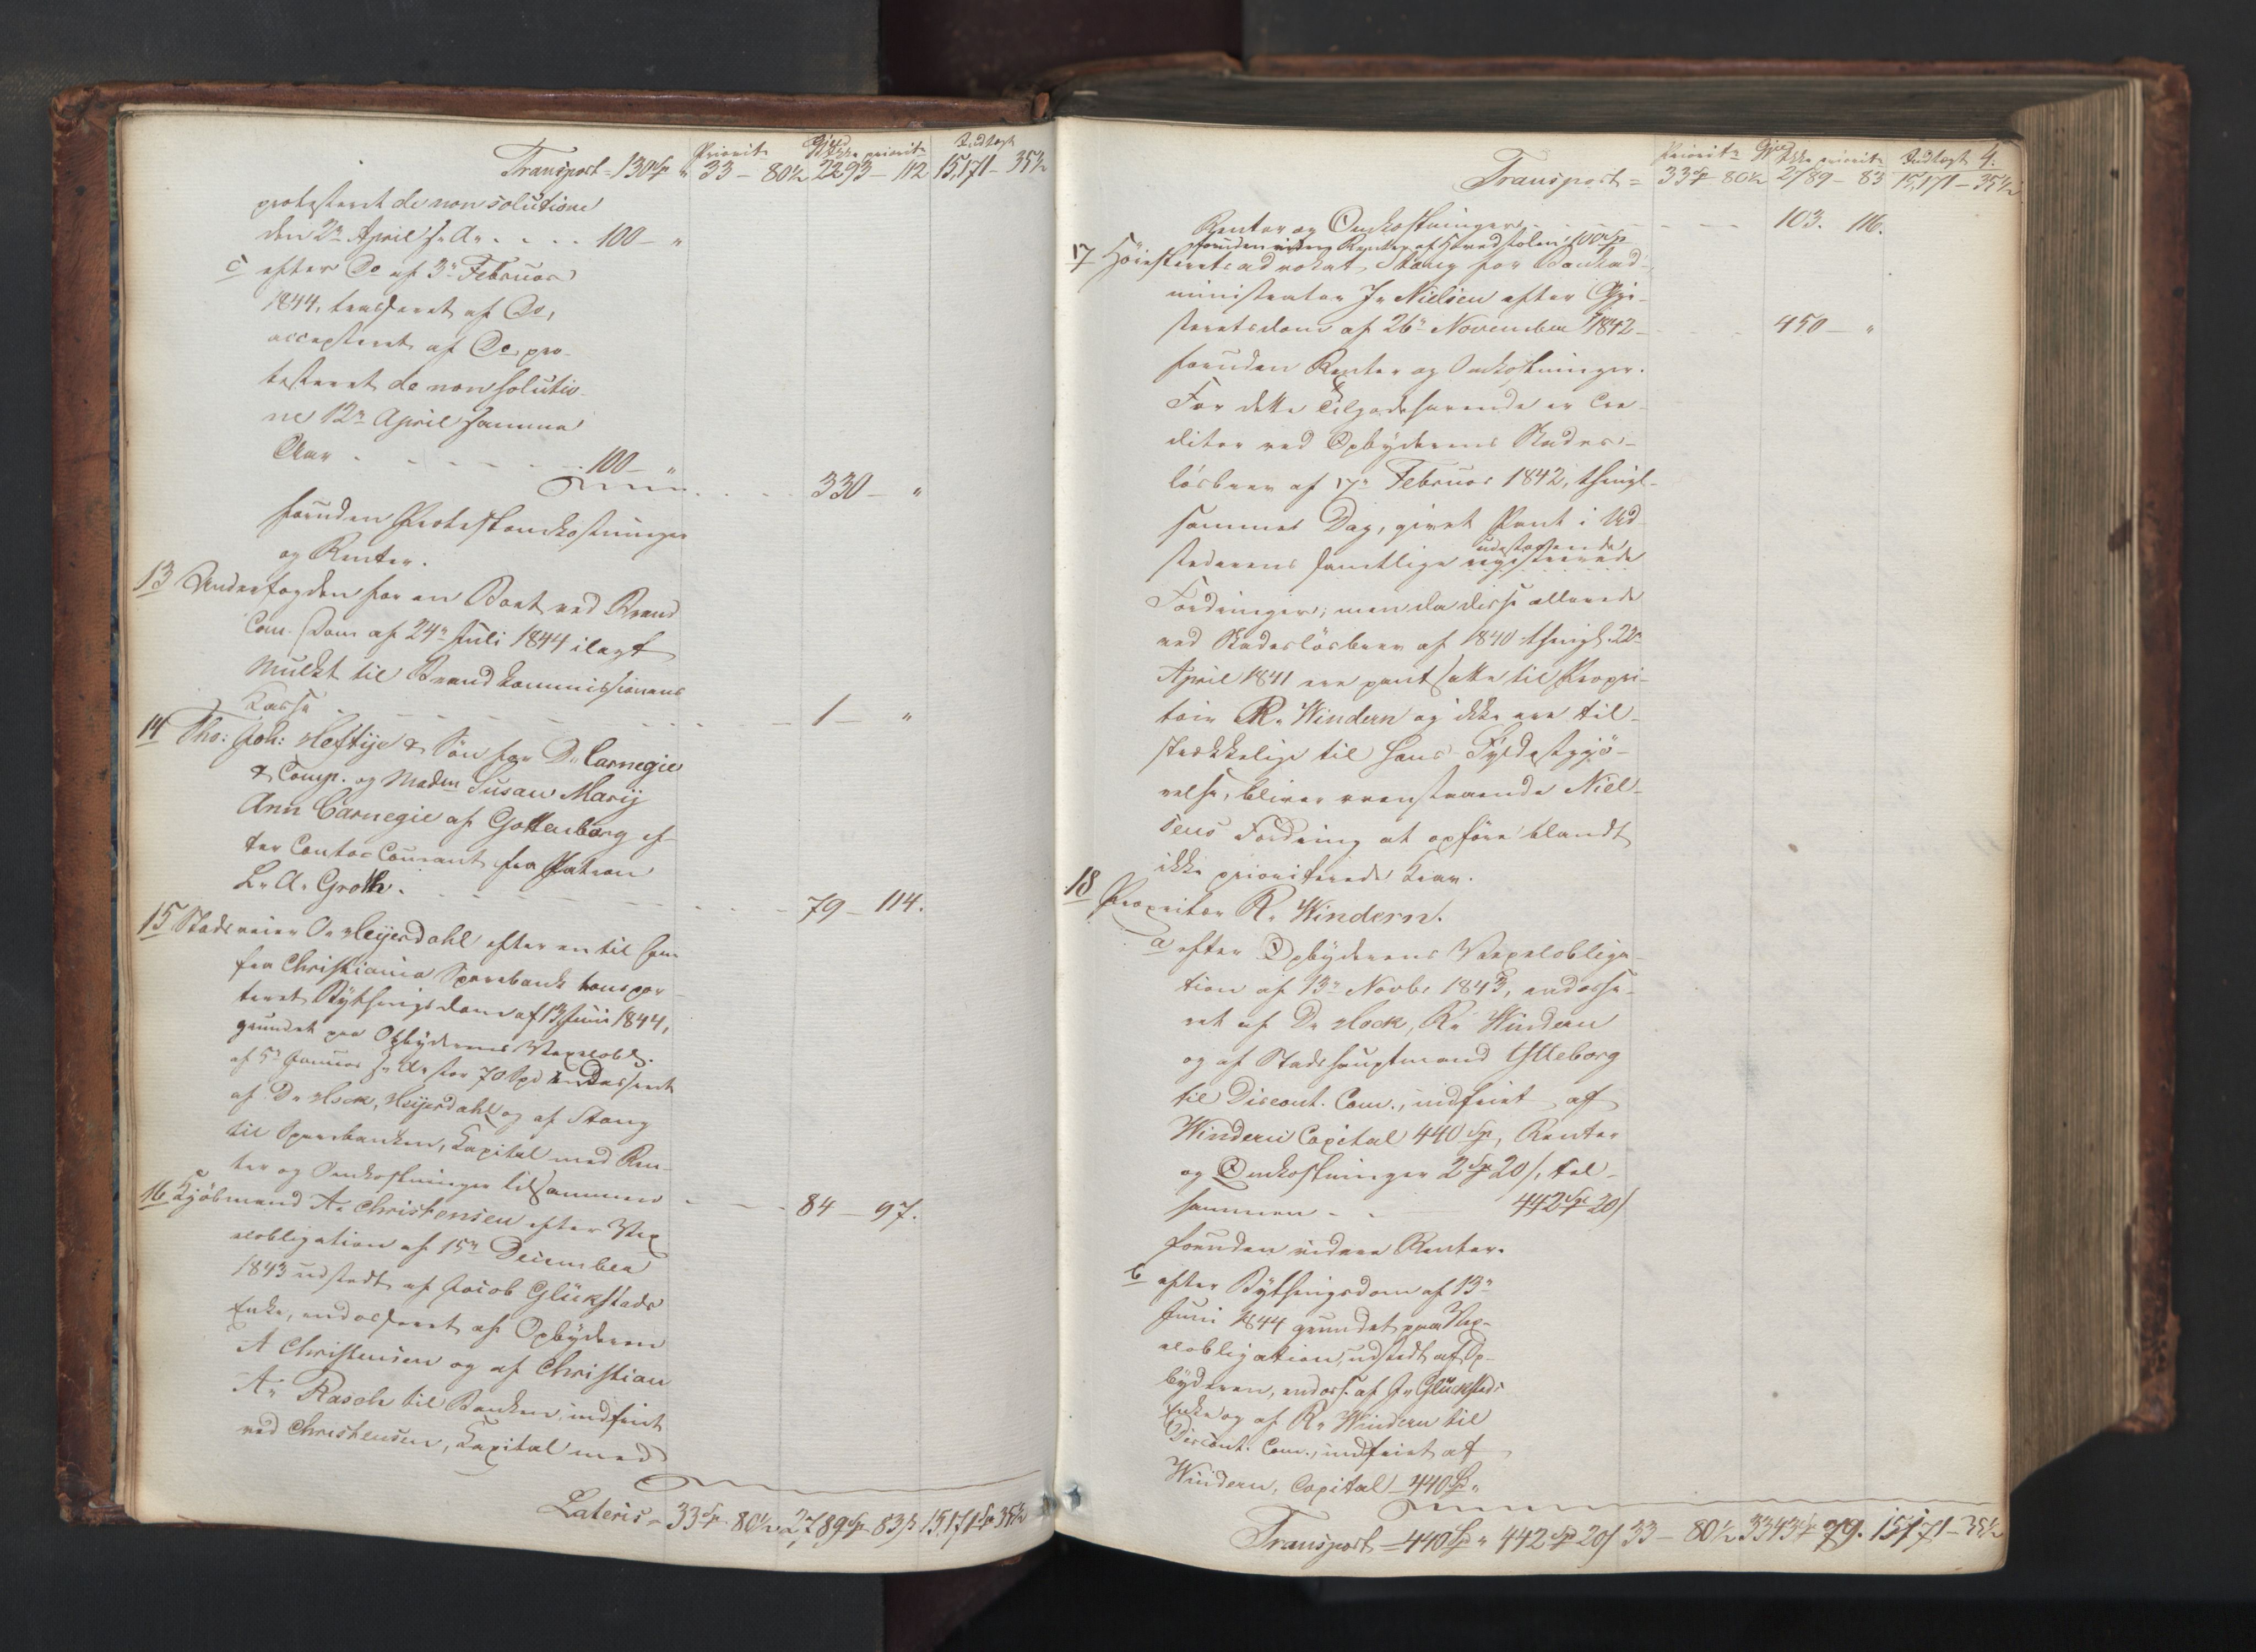 Priorit. Gjæld Ikke priorit. Indtægt
Transport = 130 Sp " 33 – 80½ 2293 – 112 15,171 – 35½
protesteret de non solutione
den 2n April s. A. . . . 100 – "
c efter Do af 3n Februar
1844, trasseret af Do,
accepteret af Do, pro-
testeret de non solutio-
ne 12n April samme
Aar . – – – – – – 100 – "
330 – "
foruden Protestomkostninger
og Renter.
13 Underfogden for en Boet ved Brand
Com. Dom af 24n Juli 1844 ilagt
Mulkt til Brandkommissionens
Kasse – – – – – – 1 – "
14 Tho: Joh: Heftye & Søn for D. Carnegie
& Comp. og Madm Susan Mary
Ann Carnegie af Gottenborg ef-
ter Conto-Courant fra Patron
L. A. Groth. – – – – – – 79 – 114.
15 Stadsveier O. Heyerdahl efter en til ham
fra Christiania Sparebank transpor-
teret Bythingsdom af 13 Juni 1844,
grundet paa Opbyderens Vexelobl.
af 5n Januar s. A. stor 70 Spd endosseret
af D. Hock, Heyerdahl og af Stang
til Sparebanken, Kapital med Ren-
ter og Omkostninger tilsammen – – – 84 – 97.
16 Kjøbmand A. Christensen efter Vex-
elobligation af 15n December
1843 udstedt af Jacob Glückstads
Enke, endosseret af Opbyderen
A Christensen og af Christian
A. Rasch til Banken, indfriet
ved Christensen, Kapital med
Lateris = 33 Sp. 80½ 2,789 Sp 83 ß 15,171 Sp 35½
4.
Priorit. Gjæld Ikke priorit. Indtægt
Transport = 33 Sp 80½ 2789 – 83 15,171 – 35½
Renter og Omkostninger – – – – 103. 116.
foruden videre Renter af Hovedstolen 100 Sp
17 Høiesteretsadvokat Stang for Bankad-
ministrator J. Nielsen efter Gje-
steretsdom af 26n November 1842 – – 450 – "
foruden Renter og Omkostninger.
For dette Tilgodehavende er Cre-
ditor ved Opbyderens Skades-
løsbrev af 17n Februar 1842, thingl.
sammes Dag, givet Pant i Ud-
udestaaende
stederens samtlige registrerede
Fordringer; men da disse allerede
ved Skadesløsbrev af 1840 thingl. 22n
April 1841 ere pantsatte til Propri-
tair R. Windern og ikke ere til-
strækkelige til hans Fyldestgjø-
relse, bliver ovenstaaende Niel-
sens Fordring at opføre blandt
ikke prioriterede Krav.
18 Propritær R. Windern.
a efter Opbyderens Vexelobliga-
tion af 13n Novbr 1843, endosse-
ret af D. Hock, R. Windern
og af Stadshauptmand Ytteborg
til Discont. Com., indfriet af
Windern Capital 440 Sp, Renter
og Omkostninger 2 Sp 20 ß, til-
sammen – – 442 Sp 20 ß
foruden videre Renter.
b efter Bythingsdom af 13n
Juni 1844 grundet paa Vex-
elobligation, udstedt af Op-
byderen, endoss. af J. Glückstads
Enke og af R. Windern til
Discont. Com., indfriet af
Windern, Capital 440 Sp "
Transport = 440 Sp " 442 Sp 20 ß 33 – 80½ 3343 Sp 79. 15,171 – 35½